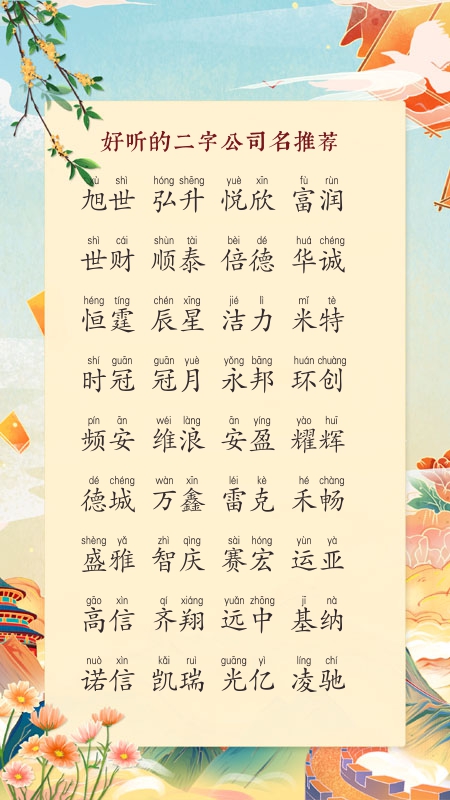 好听的二字公司名推荐
xù shì hóng shēng yuè xīn fù rùn
旭世 弘升 悦欣 富润
shì cái shùn tài bèi dé huá chéng
世财 顺泰 倍德 华诚
héng tíng chén xīng jié lì mǐ tè
恒霆 辰星 洁力 米特
shí guān guān yuè yǒng bāng huán chuàng
时冠 冠月 永邦 环创
pín ān wéi làng ān yíng yào huī
频安 维浪 安盈 耀辉
dé chéng wàn xīn léi kè hé chàng
德城 万鑫 雷克 禾畅
shèng yǎ zhì qìng sài hóng yùn yà
盛雅 智庆 赛宏 运亚
gāo xìn qí xiáng yuǎn zhōng jī nà
高信 齐翔 远中 基纳
nuò xìn kǎi ruì guāng yì líng chí
诺信 凯瑞 光亿 凌驰